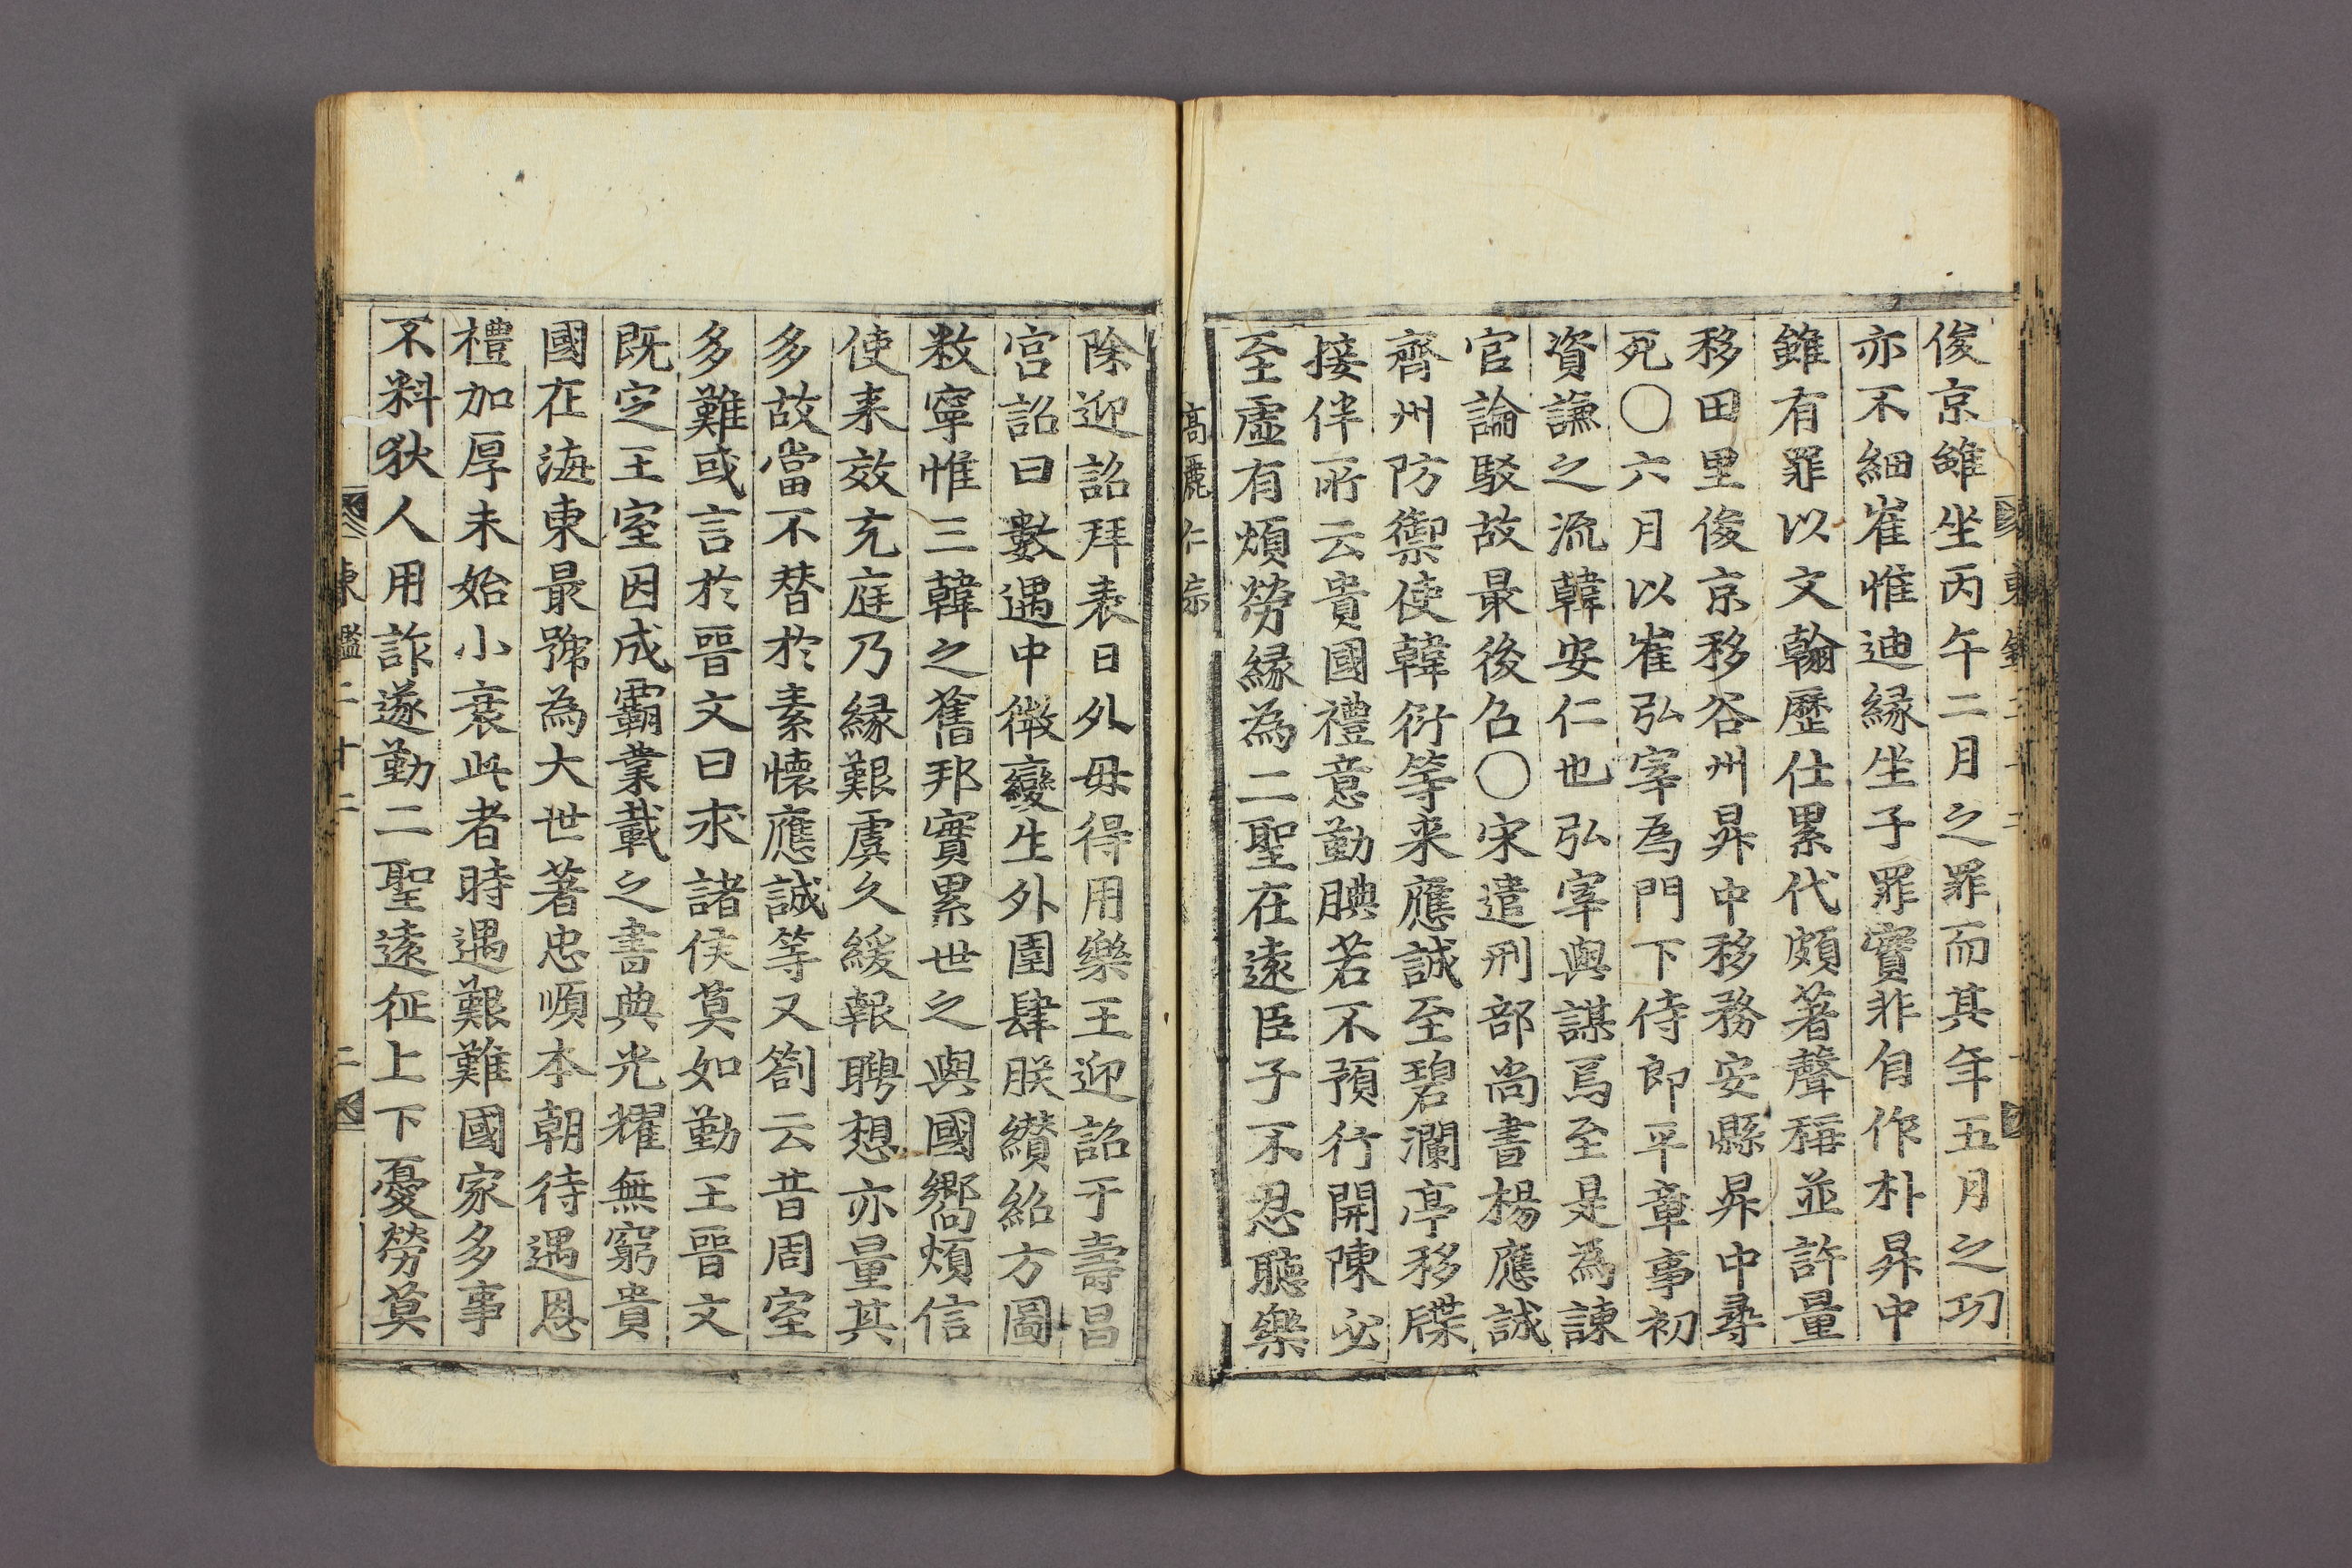 俊京雖坐丙午二月之罪而其年五月之功
亦不細崔惟迪緣坐子罪實非自作朴昇中
雖有罪以文翰歷仕累代頗著聲稱並許量
移田里俊京移谷州昇中移務安縣昇中尋
死○六月以崔弘宰爲門下侍郎平章事初
資謙之流韓安仁也弘宰與謀焉至是為諫
官論駁故最後召○宋遣刑部尚書楊應誠
齊州防禦使韓衍等来應誠至碧瀾亭移牒
接伴所云貴國禮意勤腆若不預行開陳必
至虛有煩勞緣為二聖在遠臣子不忍聽樂
高麗仁宗
除迎詔拜表日外毋得用樂王迎詔于壽昌
宮詔曰數遇中微變生外圉肆朕纘紹方圖
敉寧惟三韓之舊邦實累世之與國嚮煩信
使来效充庭乃緣艱虞久緩報聘想亦量其
多故當不替於素懷應誠等又劄云昔周室
多難或言於晉文曰求諸侯莫如勤王晉文
既定王室因成霸業載之書典光耀無窮貴
國在海東最號為大世著忠順本朝待遇恩
禮加厚未始小衰此者時遇艱難國家多事
不料狄人用詐遂勤二聖遠征上下憂勞莫
東鑑二十二 二